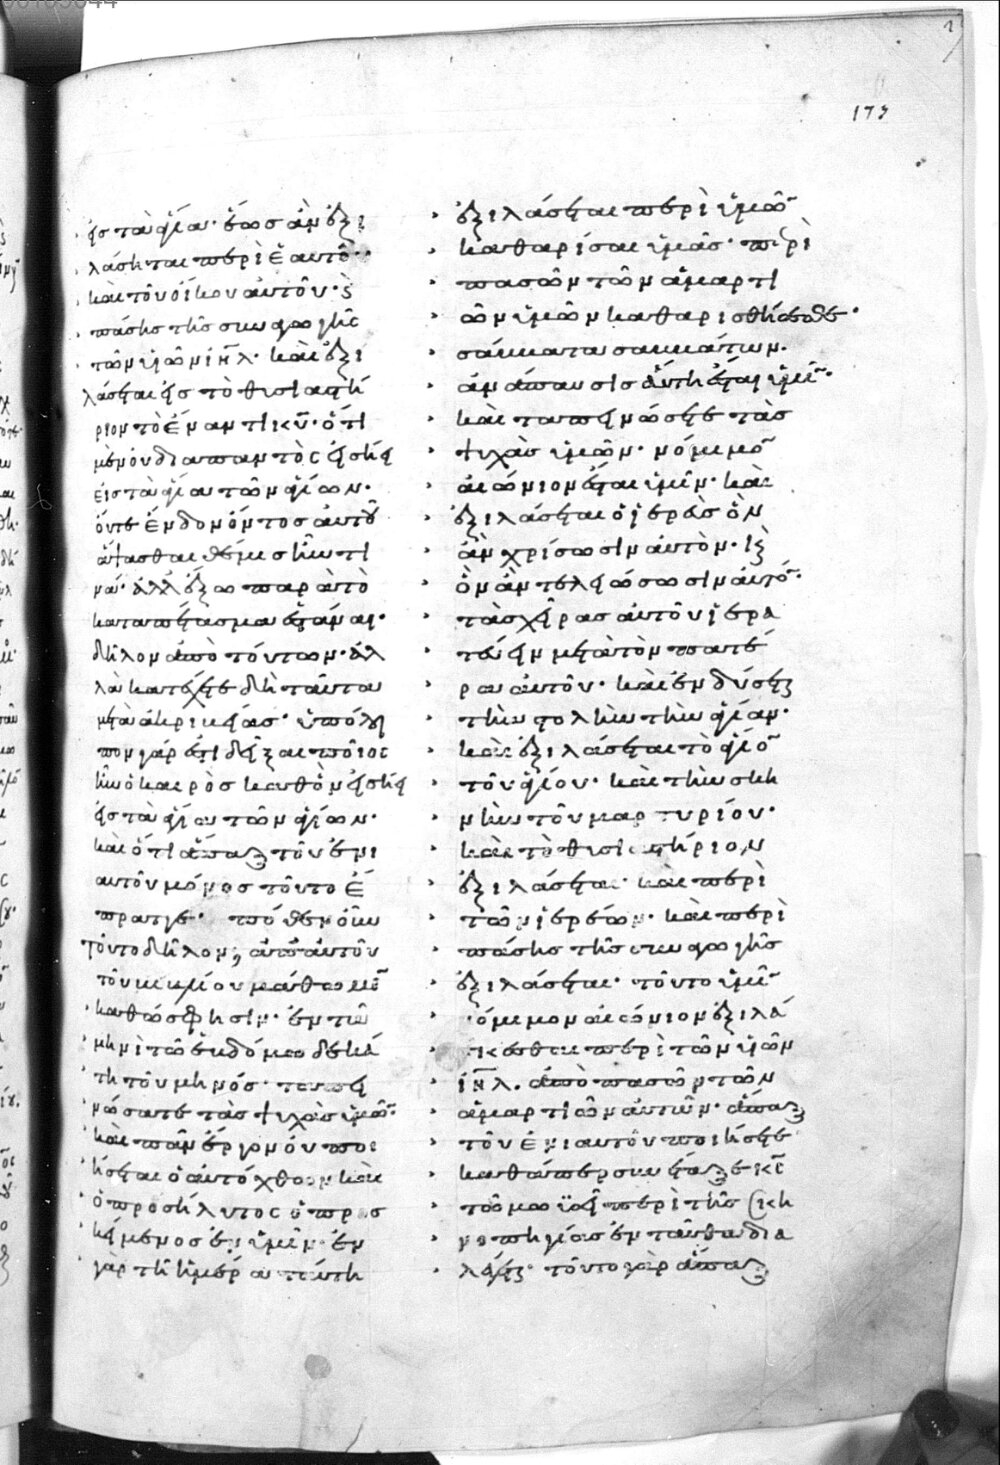 173
εἰς τὰ ἅγια· ἕως ἂν ἐξι
λάσηται περὶ ἑαυτοῦ·
καὶ τοῦ οἴκου αὐτοῦ· καὶ
πάσης τῆς συναγωγῆς
τῶν υἱῶν ιηλ· καὶ ἐξι
λάσεται εἰς τὸ θυσιαστή
ριον τὸ ἔναντι κυ· ὅτι
μὲν οὐ διαπαντὸς εἰσῄει
εἰς τὰ ἅγια τῶν ἁγίων·
οὔτε ἐνδὸν ὄντος αὐτοῦ
ἅψασθαι θέμις ἦν τι
νά· ἀλλ' ἔξω παρ αὐτὸ
καταπέτασμα ἑστάναι·
δῆλον ἀπὸ τούτων· ἀλ
λὰ κατέχετε δὴ ταῦτα
μετὰ ἀκριβείας· ὑπόλοι
πον γάρ ἐπιδεῖξαι ποῖος
ἦν ὁ καιρὸς καθ' ὃν εἰσῄει
εἰς τὰ ἅγια τῶν ἁγίων·
καὶ ὅτι ἅπαξ τοῦ ἐνι
αυτοῦ μόνος τοῦτο ἔ
πραττε· πόθεν οὖν
τοῦτο δῆλον; ἀπ' αὐτοῦ
τοῦ βιβλίου μάθωμεν
καθώς φησιν· ἐν τῷ
μηνὶ τῷ ἑβδόμῳ δεκά
τῃ τοῦ μηνός· ταπει
νώσατε τὰς ψυχὰς ὑμῶν·
καὶ πᾶν ἔργον οὐ ποι
ήσεται ὁ αὐτόχθων καὶ
ὁ προσήλυτος ὁ προσ
κείμενος ἐν ὑμῖν· ἐν
γὰρ τῇ ἡμέρᾳ ταύτῃ
ἐξιλάσεται περὶ ὑμῶν
καθαρίσαι ὑμᾶς· περὶ
πασῶν τῶν ἁμαρτι
ῶν ὑμῶν καθαρισθήσεσθε·
σάββατα σαββάτων·
ἀνάπαυσις αὕτη ἔσται ὑμῖν·
καὶ ταπεινώσετε τὰς
ψυχὰς ὑμῶν· νόμιμον
αἰώνιον ἔσται ὑμῖν· καὶ
ἐξιλάσεται ὁ ἱερεὺς ὃν
ἂν χρίσωσιν αὐτὸν· καὶ
ὃν ἂν τελειώσωσιν αὐτοῦ·
τὰς χεῖρας αὐτοῦ ἱερα
τεύειν μετὰ τὸν πατέ
ρα αὐτοῦ· καὶ ἐνδύσεται
τὴν στολὴν τὴν ἁγίαν·
καὶ ἐξιλάσεται τὸ ἅγιον
τοῦ ἁγίου· καὶ τὴν σκη
νὴν τοῦ μαρτυρίου·
καὶ τὸ θυσιαστήριον
ἐξιλάσεται· καὶ περὶ
τῶν ἱερέων· καὶ περὶ
πάσης τῆς συναγωγῆς
ἐξιλάσεται· τοῦτο ὑμῖν
νόμιμον αἰώνιον ἐξιλά
σκεσθαι περὶ τῶν υἱῶν
ιηλ· ἀπὸ πασῶν τῶν
ἁμαρτιῶν αὐτῶν· ἅπαξ
τοῦ ἐνιαυτοῦ ποιήσετε
καθάπερ συνέταξε κς
τῷ μωϋσεῖ περὶ τῆς σκη
νοπηγίας ἐνταῦθα δια
λέγεται· τοῦτο γὰρ ἅπαξ